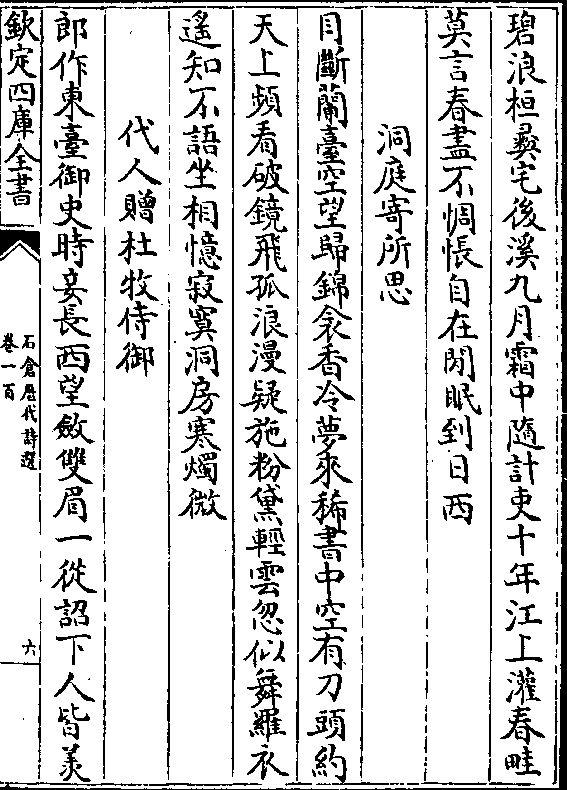 碧浪桓彛宅後溪九月霜中隨計吏十年江上灌春畦
莫言春盡不惆悵自在閒眠到日西
洞庭寄所思
目斷蘭臺空望歸錦衾香冷夢來稀書中空有刀頭約
天上頻看破鏡飛孤浪漫疑施粉黛輕雲忽似舞羅衣
遙知不語坐相憶寂寞洞房寒燭微
代人贈杜牧侍御
郎作東臺御史時妾長西望斂雙眉一從詔下人皆羨
欽定四庫全書
石倉歷代詩選
卷一百
六